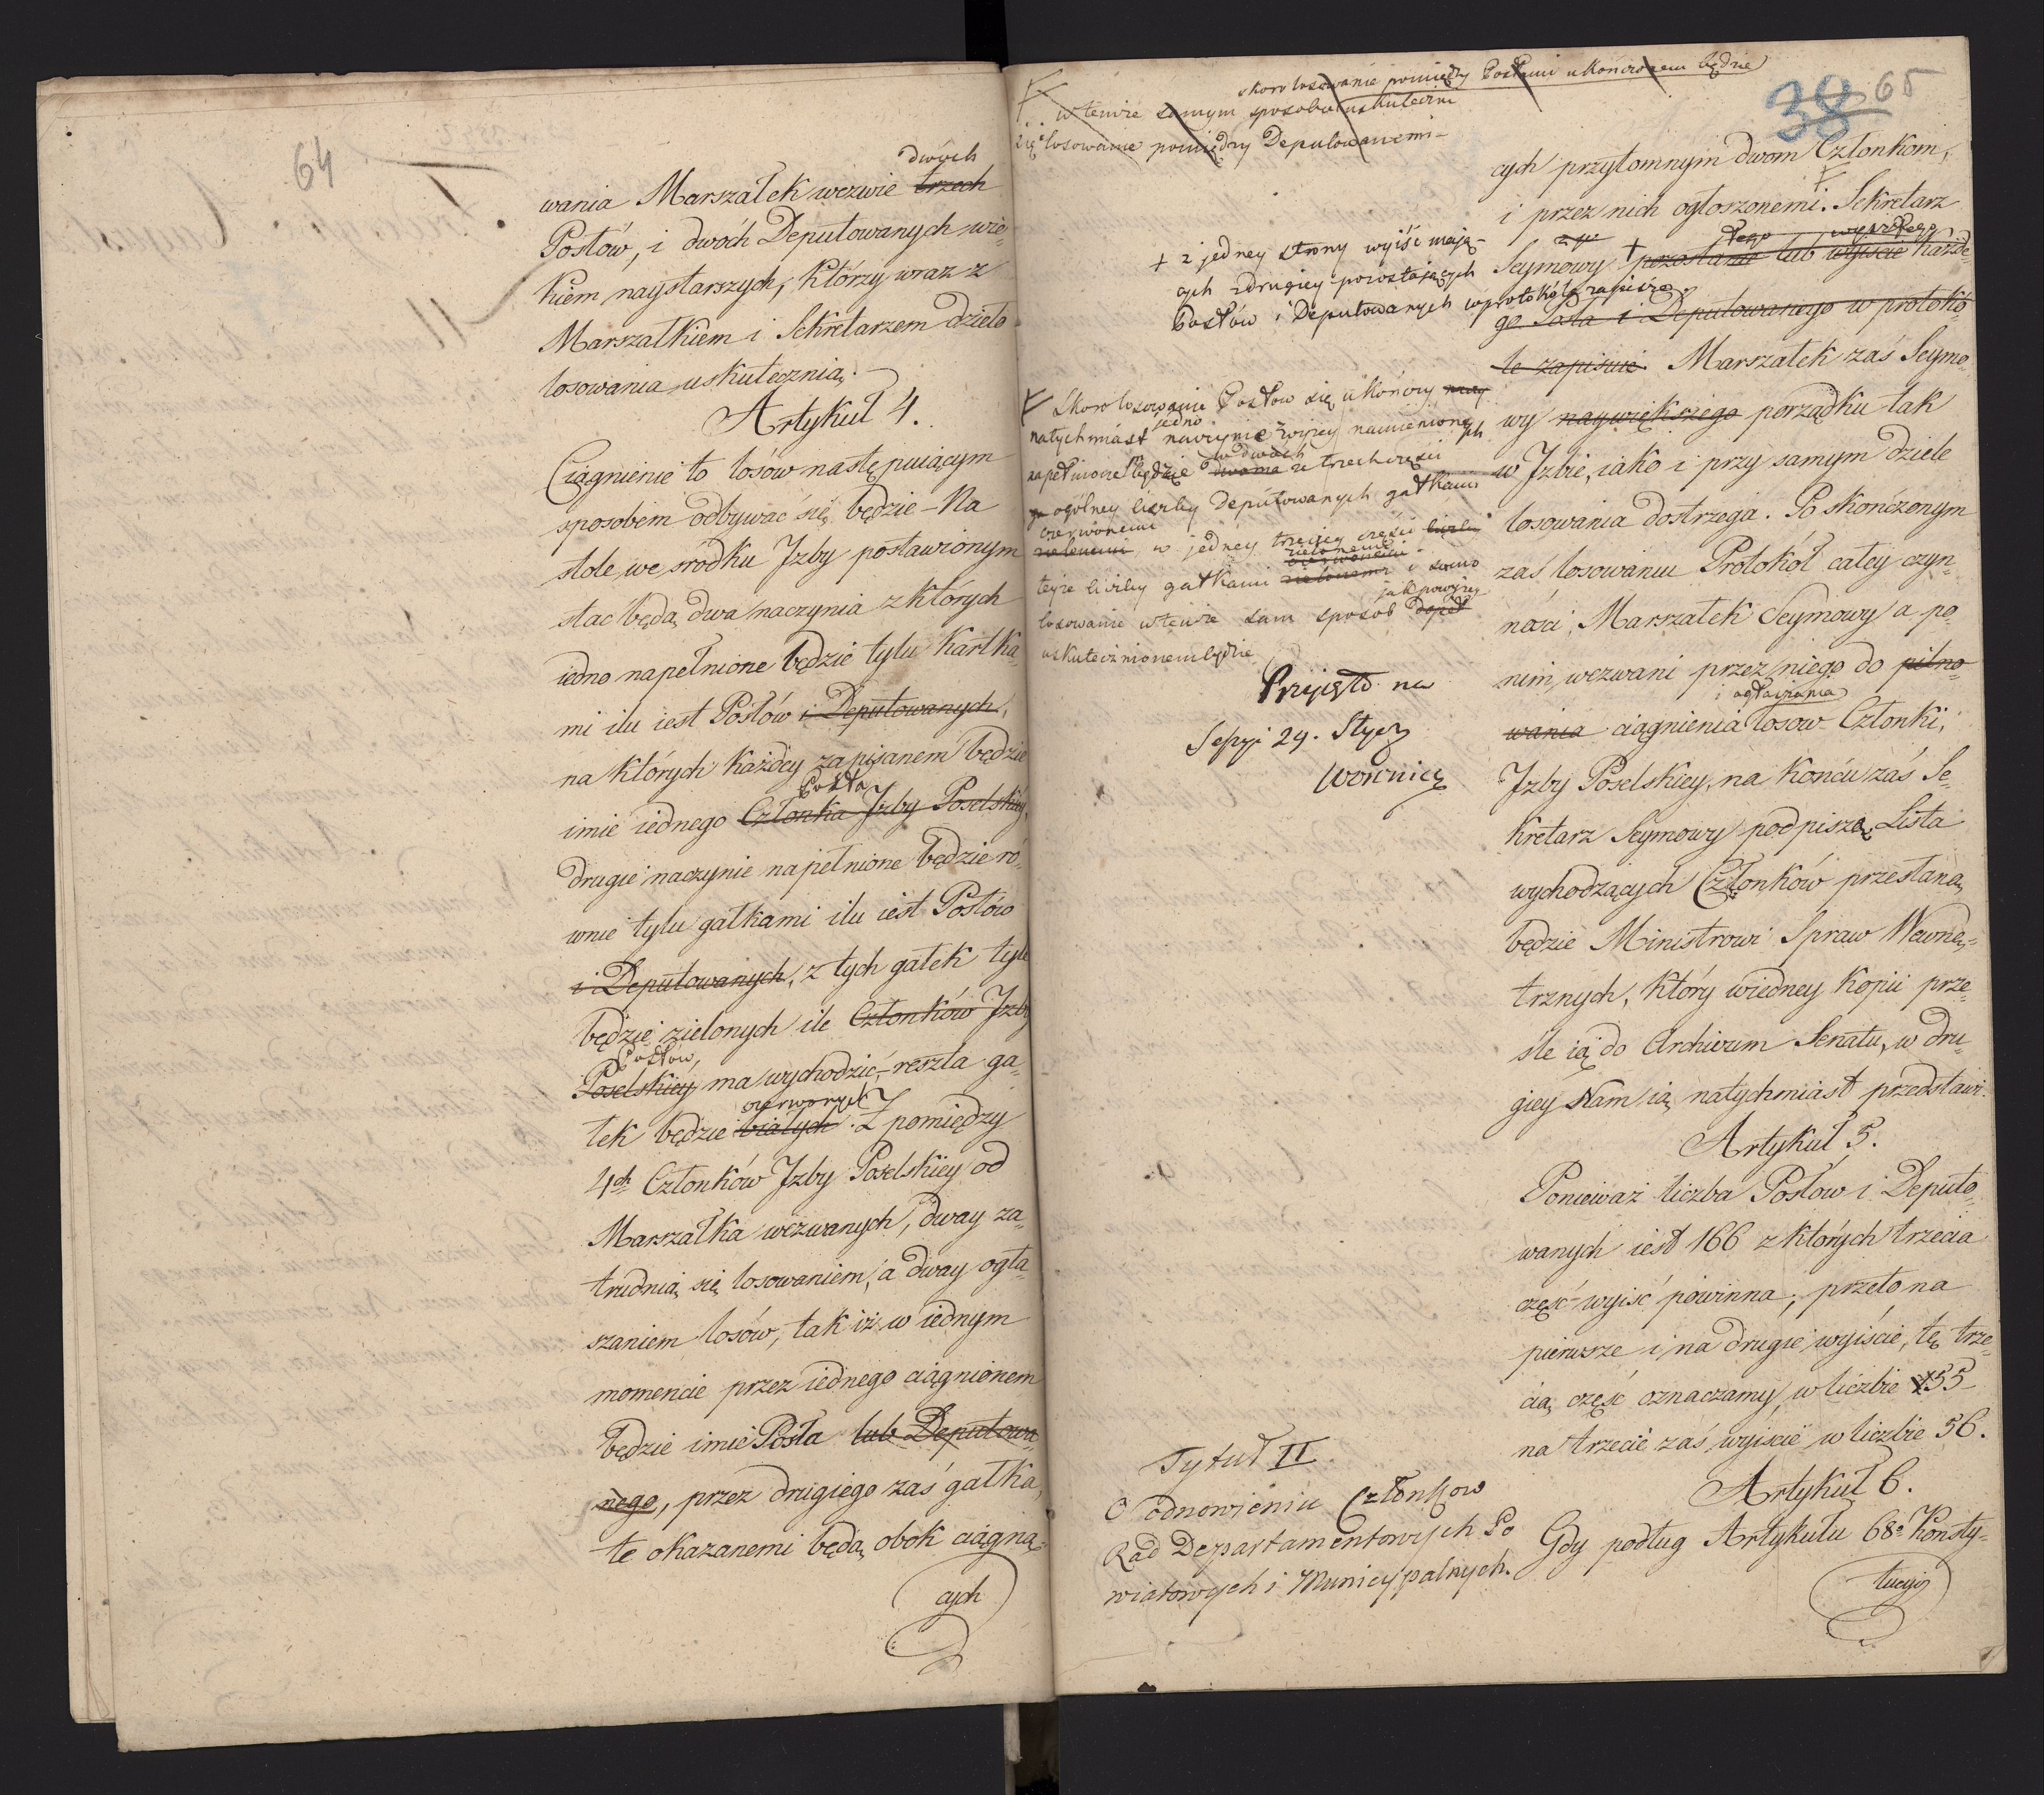 64
dwóch
wania Marszałek wezwie trzech
Posłów, i dwóch Deputowanych wie-
kiem naystarszych, którzy wraz z
Marszałkiem i Sekretarzem dzieło
losowania uskutecznią.
Artykuł 4.
Ciągnienie to losów następuiącym
sposobem odbywać się będzie - Na
stole we srodku Jzby postawionym
stac będą dwa naczynia z których
iedno napełnione będzie tylu kartka-
mi ilu iest Posłów i Deputowanych,
na których każdey zapisanem będzie
Posła
imie iednego Członka Jzby Poselskiey,
drugie naczynie napełnione będzie ró-
wnie tylu gałkami ilu iest Posłów
i Deputowanych, z tych gałek tyle
będzie zielonych ile Członków Jzby
Posłów,
Poselskiey ma wychodzić, - reszta ga-
czerwonych
łek będzie białych. Z pomiędzy
4ch Członków Jzby Poselskiey od
Marszałka wezwanych, dway za-
trudnią się losowaniem, a dway ogła-
szaniem losów, tak iż w iednym
momencie przez iednego ciągnionem
będzie imie Posła lub Deputowa-
nego, przez drugiego zaś gałka,
te okazanemi będą obok ciągną-
cych
38 65
skoro losowanie pomiędzy Posłami ukończonem będzie
w temże samym sposobie uskuteczni
się losowanie pomiędzy Deputowanemi -
cych przytomnym dwom Członkom,
i przez nich ogłoszonemi. Sekretarz
łego wyszłego
Seymowy + pozostanie lub wyiście każde-
go Posła i Deputowanego w protokó-
le zapisuie. Marszałek zaś Seymo-
wy naywiększego porządku tak
w Jzbie, iako i przy samym dziele
losowania dostrzega. Po skończonym
zaś losowaniu Protokół całey czyn-
ności, Marszałek Seymowy a po
nim, wezwani przez niego do pilno-
i ogłaszania
wania ciągnienia losow Członki,
Jzby Poselskiey, na końcu zaś Se-
kretarz Seymowy podpiszą. Lista
wychodzących Członków przesłaną
będzie Ministrowi Spraw Wewnę-
trznych, który w iedney kopii prze-
śle ią do Archiwum Senatu, w dru-
giey Nam ią natychmiast przedstawi.
Artykuł 5.
Ponieważ liczba Posłow i Deputo-
wanych iest 166 z których trzecia
część wyiść powinna, przeto na
pierwsze i na drugie wyiście, tę trze-
cią część oznaczamy w liczbie 55
na trzecie zaś wyiście w liczbie 56.
Artykuł 6.
Gdy podług Artykułu 68o Konsty-
tucyi
+ z jedney strony wyiść mają-
cych z drugiey pozostających
Posłów i Deputowanych w protokóle zapisze.
Skoro losowanie Posłow się ukończy
jedno
natychmiast naczynie z wyżey namienionych
w dwóch
napełnione będzie dwoma ze trzech części
ogólney liczby Deputowanych gałkami
czerwonemi
zielonemi, w jedney trzeciey części liczby
zielonemi
czerwonemi
teyże liczby gałkami zielonemi i samo
jak powyżey
losowanie w temże sam sposob
uskutecznionem będzie
Przyięto na
Sessyi 29. Stycz
Woźnicz
Tytuł II
O odnowieniu Członkow
Rad Departamentowych Po
wiatowych i Municypalnych.